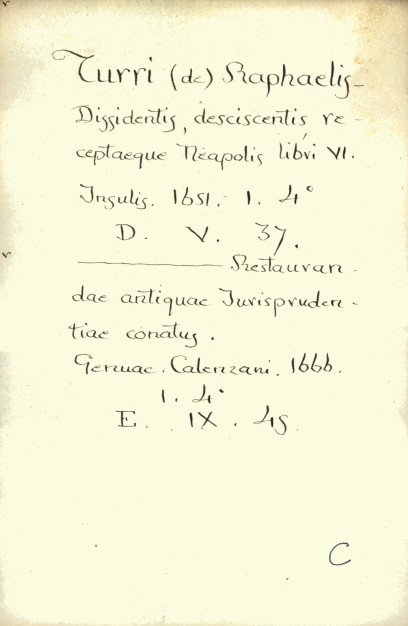 Turri (de) Raphaelis
Dissidentis, desciscentis re-
ceptaeque Neapolis libri VI.
Insulis. 1651. 1. 4°
D. V. 37.
——— Restauran-
dae antiquae Jurispruden-
tiae conatus.
Genuae. Calenzani. 1666.
1. 4°
E. IX. 45
C